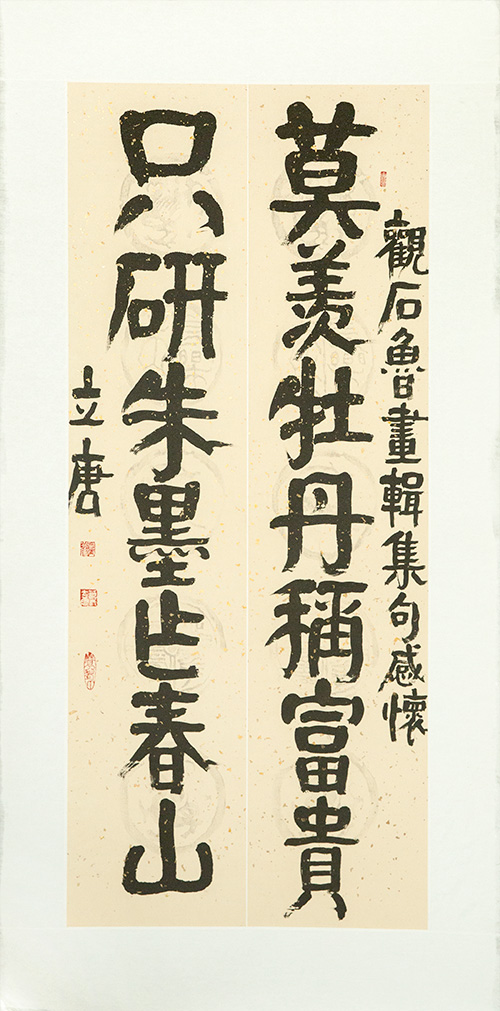 觀石魯畫輯集句感懷
莫羨牡丹稱富貴
只研朱墨乍春山
立唐